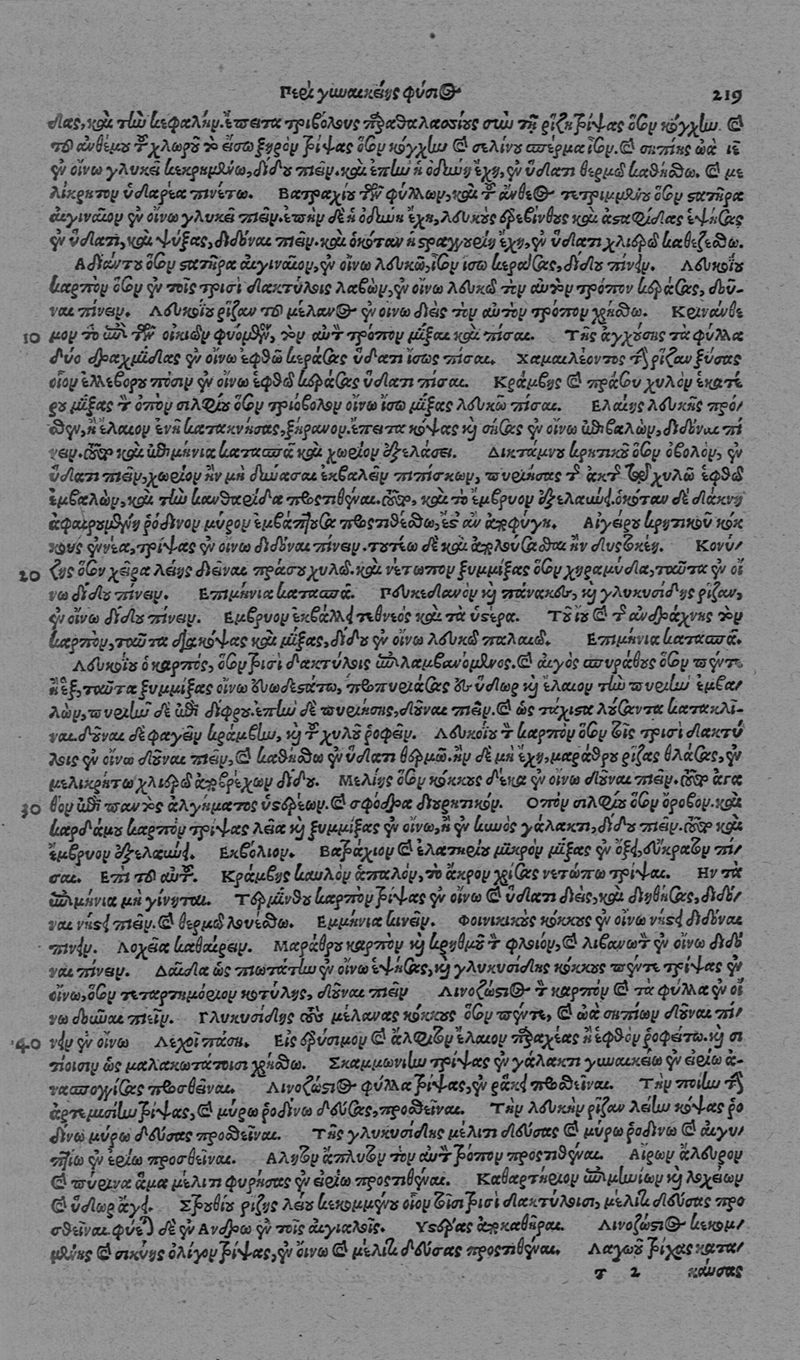 Περὶ γυναικείης φύσιος 219
δας, καὶ τὴν κεφαλήν. ἔπειτα τριβόλους παραθαλασσίους σὺν τῇ ῥίζῃ τρίψας ὅσον κόγχην. καὶ
τοῦ ἀνθέμου τὸ χλωροῦ τὸ εἴσω ξηρὸν τρίψας ὅσον κόγχην καὶ σελίνου σπέρμα ἴσον. καὶ σηπίης ὠὰ
ἐν οἴνῳ γλυκεῖ κεκρημένῳ, δίδου πιεῖν. καὶ ἐπὴν ἡ ὀδύνη ἔχῃ, ἐν ὕδατι θερμῷ καθήσθω. καὶ με
λίκρητον ὑδαρέα πινέτω. Βατραχίου τῶν φύλλων, καὶ τὸ ἄνθεος τετριμμένου ὅσον στατῆρα
αἰγιναῖον ἐν οἴνῳ γλυκεῖ πιεῖν. ἐπὴν δὲ ἡ ὀδύνη ἔχῃ, λευκοὺς ἐρεβίνθους καὶ ἀσταφίδας ἑψήσας
ἐν ὕδατι, καὶ ψύξας, διδόναι πιεῖν. καὶ ὁκόταν ἡ στραγγουρίη ἔχῃ, ἐν ὕδατι χλιερῷ καθεζέσθω.
Ἀδιάντου ὅσον στατῆρα αἰγιναῖον, ἐν οἴνῳ λευκῷ, ἴσον ἴσῳ κεράσας, δίδου πίνειν. Λευκοΐου
καρπὸν ὅσον ἐν τοῖς τρισὶ δακτύλοις λαβὼν, ἐν οἴνῳ λευκῷ τὸν αὐτὸν τρόπον κεράσας, δοῦ-
ναι πίνειν. Λευκοΐου ῥίζαν τοῦ μέλανος ἐν οἴνῳ διεὶς τὸν αὐτὸν τρόπον χρήσθω. Κρινάνθε
10 μον τὸ ἐπὶ τῶν οἰκιῶν φυόμενον, τὸν αὐτὸν τρόπον μῖξαι καὶ πῖσαι. Τῆς ἀγχούσης τὰ φύλλα
δύο δραχμίδας ἐν οἴνῳ ἑφθῷ κεράσας ὕδατι ἴσως πῖσαι. Χαμαιλέοντος τὴν ῥίζαν ξύσας
οἷον ἐλλεβόρου πόσιν ἐν οἴνῳ ἑφθῷ κεράσας ὕδατι πῖσαι. Κράμβης καὶ πράσου χυλὸν ἑκατέ
ρου μίξας τὸ ὀπὸν σιλφίου ὅσον τριόβολον οἴνῳ ἴσῳ μίξας λευκῷ πῖσαι. Ἐλαίης λευκῆς πρό/
σθεν, ἢ ἔλαιον ἐνῇ κατακνήσας, ξήρανον. ἔπειτα κόψας καὶ σήσας ἐν οἴνῳ ἐπιβαλὼν, διδόναι πί
νειν. τοῦτο καὶ ἐπιμήνια κατασπᾷ καὶ χωρίον ἐξελάσει. Δικτάμνου κρητικοῦ ὅσον ὀβολὸν, ἐν
ὕδατι πιεῖν, χωρίον ἢν μὴ δύνασαι ἐκβαλεῖν πιπίσκων, πυριήσας τὸ ἀκτῆς χυλῷ ἑφθῷ
ἐμβαλὼν, καὶ τὴν κανθαρίδα προστιθέναι. τοῦτο, καὶ τὸ ἔμβρυον ἐξελαύνει. ὁκόταν δὲ δάκνῃ
ἀφαιρουμένη ῥόδινον μύρον ἐμβάπτουσα προστιθέσθω, ἔστ' ἂν ἀποφύγῃ. Αἰγείρου κρητικοῦ κόκ
κους ἐννέα, τρίψας ἐν οἴνῳ διδόναι πίνειν. τουτέῳ δὲ καὶ ἀπολούσασθαι ἢν δυστοκέῃ. Κονύ/
20 ζης ὅσον χεῖρα λείης διεῖναι πράσου χυλῷ. καὶ νέτωπον ξυμμίξας ὅσον χηραμύδα, ταῦτα ἐν οἴ
νῳ δίδου πίνειν. Ἐπιμήνια κατασπᾷ. Πευκέδανον καὶ πάνακες, καὶ γλυκυσίδης ῥίζαν,
ἐν οἴνῳ δίδου πίνειν. Ἔμβρυον ἐκβάλλει τεθνεὸς καὶ τὰ ὕστερα. Τοῦ καὶ τὸ ἀνδράχνης τὸν
καρπὸν, ταῦτα διακόψας καὶ μίξας, δίδου ἐν οἴνῳ λευκῷ παλαιῷ. Ἐπιμήνια κατασπᾷ.
Λευκοΐου ὁ καρπὸς, ὅσον τρισὶ δακτύλοις ἀπολαμβανόμενος. καὶ αἰγὸς σπυράθους ὅσον πέντε
ἢ ἓξ, ταῦτα ξυμμίξας οἴνῳ εὐωδεστάτῳ, προπυριάσας δι' ὕδωρ καὶ ἔλαιον τὴν πυρίην ἐμβα/
λὼν, πυριῆν δὲ ἐπὶ δίφρου. ἐπὴν δὲ πυριήσῃς, δοῦναι πιεῖν. καὶ ὡς τάχιστα λούσαντα κατακλῖ-
ναι. δοῦναι δὲ φαγεῖν κράμβην, καὶ τὸ χυλοῦ ῥοφεῖν. Λευκοΐου τὸ καρπὸν ὅσον τοῖς τρισὶ δακτύ
λοις ἐν οἴνῳ δοῦναι πιεῖν, καὶ καθήσθω ἐν ὕδατι θερμῷ. ἢν δὲ μὴ ἔχῃ, μαράθρου ῥίζας θλάσας, ἐν
μελικρήτῳ χλιερῷ ἀποβρέχων δίδου. Μελίης ὅσον κόκκους δέκα ἐν οἴνῳ δοῦναι πιεῖν. τοῦτο ἀγα
30 θὸν ἐπὶ παντὸς ἀλγήματος ὑστερέων. καὶ σφόδρα διουρητικόν. Ὀπὸν σιλφίου ὅσον ὄροβον. καὶ
καρδάμου καρπὸν τρίψας λεῖα καὶ ξυμμίξας ἐν οἴνῳ, ἢ ἐν κυνὸς γάλακτι, δίδου πιεῖν. τοῦτο καὶ
ἔμβρυον ἐξελαύνει. Ἐκβόλιον. Βατράχιον καὶ ἐλατηρίου μικρὸν μίξας ἐν ὄξει, εὔκρατον πῖ/
σαι. Ἐπὶ τοῦ αὐτοῦ. Κράμβης καυλὸν ἁπαλὸν, τὸ ἄκρον χρίσας νετώπῳ τρίψαι. Ἢν τὰ
ἐπιμήνια μὴ γίνηται. Τερμίνθου καρπὸν τρίψας ἐν οἴνῳ καὶ ὕδατι διεὶς, καὶ διηθήσας, διδό/
ναι νήστει πιεῖν. καὶ θερμῷ λουέσθω. Ἐμμήνια κινεῖν. Φοινικικοὺς κόκκους ἐν οἴνῳ νήστει διδόναι
πίνειν. Λοχεῖα καθαίρειν. Μαράθρου καρπὸν καὶ κρήθμου τὸ φλοιὸν, καὶ λιβανωτὸ ἐν οἴνῳ διδό
ναι πίνειν. Δᾷδα ὡς πιωτάτην ἐν οἴνῳ ἑψήσας, καὶ γλυκυσίδης κόκκους πέντε τρίψας ἐν
οἴνῳ, ὅσον τεταρτημόριον κοτύλης, δοῦναι πιεῖν Λινοζώστιος τὸ καρπὸν καὶ τὰ φύλλα ἐν οἴ
νῳ δοῦναι πιεῖν. Γλυκυσίδης τοὺς μέλανας κόκκους ὅσον πέντε, καὶ ὠὰ σηπίων δοῦναι πί/
40 νειν ἐν οἴνῳ Λεχοῖ πάσῃ. Εἰς ἐρύσιμον καὶ ἄλφιτον ἔλαιον παραχέας ἢ ἑφθὸν ῥοφείτω. καὶ σι
τίοισιν ὡς μαλακωτάτοισι χρήσθω. Σκαμμωνίην τρίψας ἐν γάλακτι γυναικείῳ ἐν εἰρίῳ ἀ-
νασπογγίσας προσθεῖναι. Λινοζώστιος φύλλα τρίψας, ἐν ῥάκει προσθεῖναι. Τὴν ποίην τὴν
ἀρτεμισίην τρίψας, καὶ μύρῳ ῥοδίνῳ δεύσας, προσθεῖναι. Τὴν λευκὴν ῥίζαν λείην κόψας ῥο
δίνῳ μύρῳ δεύσας προσθεῖναι. Τῆς γλυκυσίδης μέλιτι δεύσας καὶ μύρῳ ῥοδίνῳ καὶ αἰγυ/
πτίῳ ἐν εἰρίῳ προσθεῖναι. Ἄλητον ἄπλυτον τὸν αὐτὸ τρόπον προστιθέναι. Αἰρῶν ἄλευρον
καὶ πύρινα ἅμα μέλιτι φυρήσας ἐν εἰρίῳ προστιθέναι. Καθαρτήριον ἐπιμηνίων καὶ λοχείων
καὶ ὕδωρ ἄγει. Στρουθίου ῥίζης λείου κεκομμένου οἷον τοῖσι τρισὶ δακτύλοισι, μέλιτι δεύσας προ
σθεῖναι. φύεται δὲ ἐν Ἄνδρῳ ἐν τοῖς αἰγιαλοῖς. Ὑστέρας ἀποκαθῆραι. Λινοζώστιος κεκομ/
μένης καὶ σικύης ὀλίγον τρίψας, ἐν οἴνῳ καὶ μέλιτι δεύσας προστιθέναι. Λαγωοῦ τρίχας κατα/
τ 2 καύσας